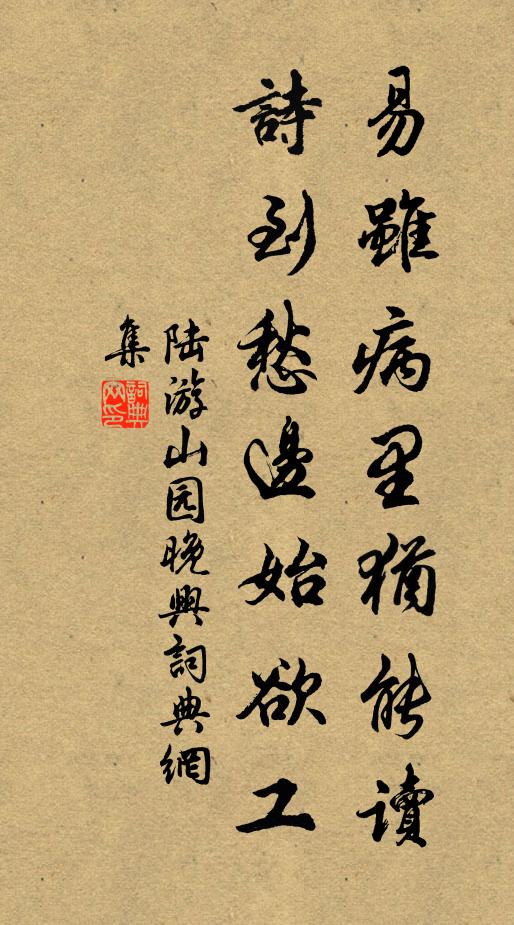 易雖病里猶能讀
詩到愁邊始欲工
陆游山园晚興詞典網
集
詞典网印